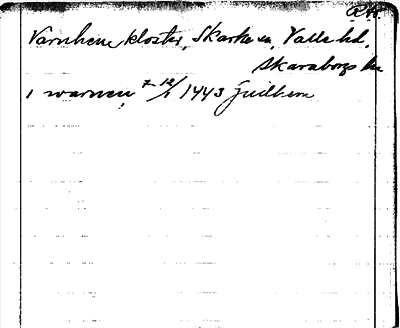 R.A.
Varnhem kloster, Skarke sn, Valle hd,
Skaraborgs län
i warnem 7-12/1 1443 Gudhem